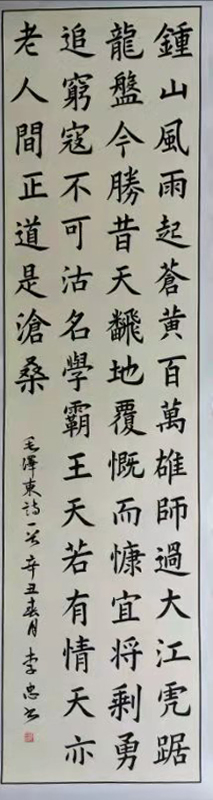 鍾山風雨起蒼黄百萬雄師過大江虎踞
龍盤今勝昔天飜地覆慨而慷宜将剩勇
追窮寇不可沽名學霸王天若有情天亦
老人間正道是滄桑
毛澤東詩一首 辛丑春月 李忠书